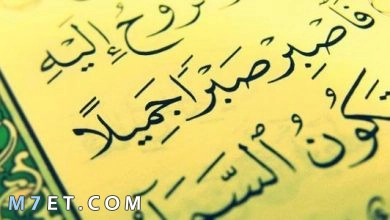 وَٱلرُّوحُ إِلَيْهِ
فَٱصْبِرْ صَبْرًا جَمِيلًا
تَكُونُ ٱلسَّمَآ
M7ET.COM